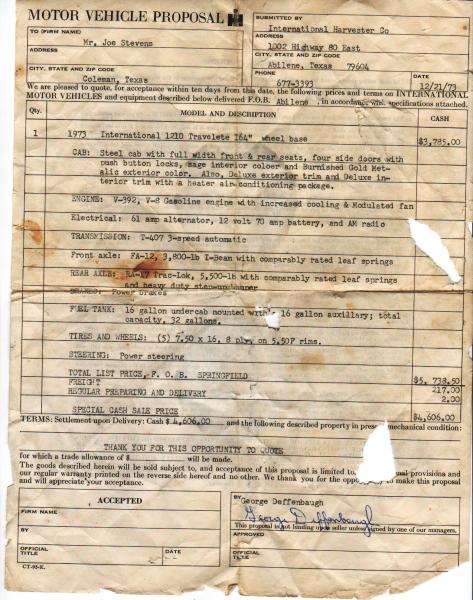 MOTOR VEHICLE PROPOSAL IH
TO (FIRM NAME)
Mr. Joe Stevens
ADDRESS
CITY, STATE AND ZIP CODE
Coleman, Texas
SUBMITTED BY
International Harvester Co
ADDRESS
1002 Highway 80 East
CITY, STATE AND ZIP CODE
Abilene, Texas 79604
PHONE
677-3393
DATE
12/21/73
We are pleased to quote, for acceptance within ten days from this date, the following prices and terms on INTERNATIONAL
MOTOR VEHICLES and equipment described below delivered F.O.B. Abilene , in accordance with specifications attached.
Qty. MODEL AND DESCRIPTION CASH
1 1973 International 1210 Travelete 164" wheel base $3,785.00
CAB: Steel cab with full width front & rear seats, four side doors with
push button locks, sage interior coloer and Burnished Gold Met-
alic exterior color. Also, Deluxe exterior trim and Deluxe in-
terior trim with a heater air conditioning package.
ENGINE: V-392, V-8 Gasoline engine with increased cooling & Modulated fan
Electrical: 61 amp alternator, 12 volt 70 amp battery, and AM radio
TRANSMISSION: T-407 3-speed automatic
Front axle: FA-12, 3,800-lb I-Beam with comparbly rated leaf springs
REAR AXLE: RA-17 Trac-Lok, 5,500-lb with comparbly rated leaf springs
and heavy duty step bumper
BRAKES: Power brakes
FUEL TANK: 16 gallon undercab mounted with 16 gallon auxillary; total
capacity, 32 gallons.
TIRES AND WHEELS: (5) 7.50 x 16, 8 ply, on 5.50F rims.
STEERING: Power steering
TOTAL LIST PRICE, F. O. B. SPRINGFIELD $5, 738.50
FREIGHT 217.00
REGULAR PREPARING AND DELIVERY 2.00
SPECIAL CASH SALE PRICE $4,606.00
TERMS: Settlement upon Delivery: Cash $ 4,606.00 and the following described property in present mechanical condition:
THANK YOU FOR THIS OPPORTUNITY TO QUOTE
for which a trade allowance of $ will be made.
The goods described herein will be sold subject to, and acceptance of this proposal is limited to, provisions and
our regular warranty printed on the reverse side hereof and no other. We thank you for the opportunity to make this proposal
and will appreciate your acceptance.
ACCEPTED
FIRM NAME
BY
OFFICIAL TITLE
DATE
BY
George Deffenbaugh
George Deffenbaugh
This proposal is not binding upon seller unless signed by one of our managers.
APPROVED
OFFICIAL TITLE
CT-92-K.